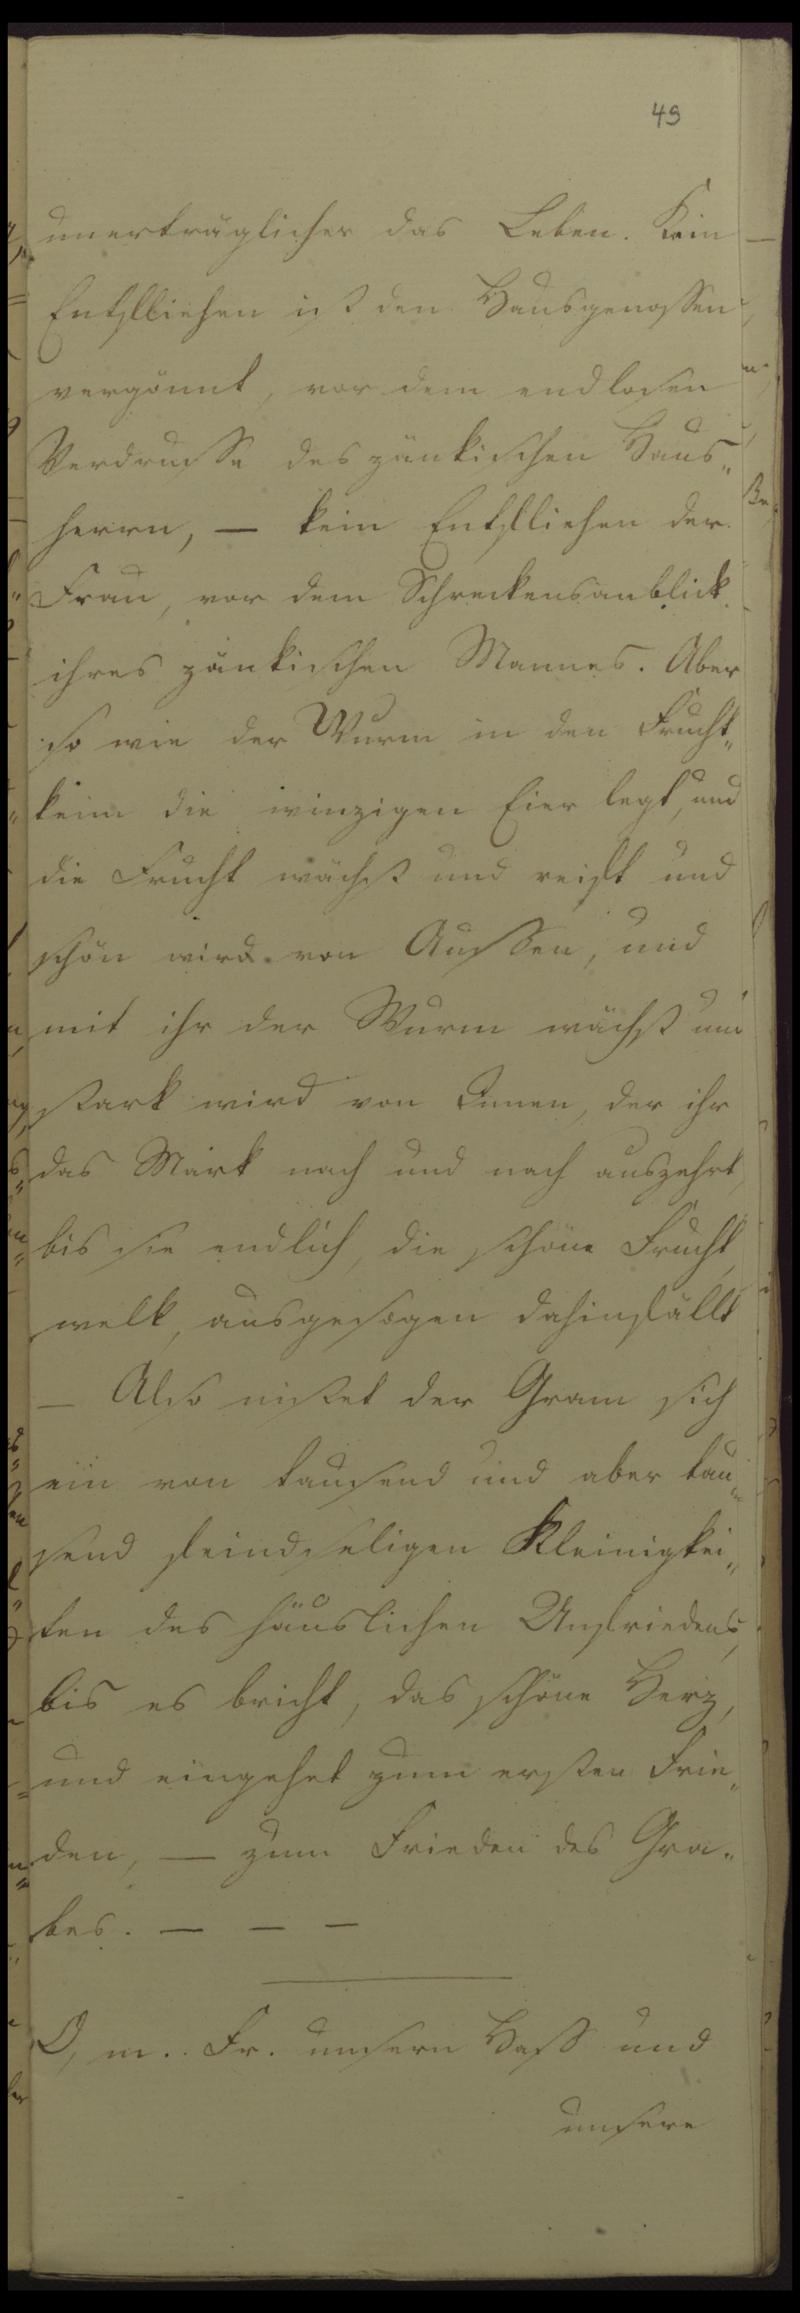 49
unerträglicher das Leben. Kein
Entfliehen ist den Hausgenossen
vergönnt, vor dem endlosen
Verdrusse des zänkischen Haus„
herrn, — kein Entfliehen der
Frau, vor dem Schreckensanblick
ihres zänkischen Mannes. Aber
so wie der Wurm in den Frucht„
keim die winzigen Eier legt, und
die Frucht wächst und reift und
schön wird von Aussen, und
mit ihr der Wurm wächst und
stark wird von Innen, der ihr
das Mark nach und nach auszehrt,
bis sie endlich, die schöne Frucht,
welk, ausgesogen dahinfällt
— Also nistet der Gram sich
ein von tausend und aber tau„
send feindseligen Kleinigkei„
ten des häuslichen Unfriedens,
bis es bricht, das schöne Herz,
und eingehet zum ersten Frie„
den, — zum Frieden des Gra„
bes. — — —
O, m.. Fr. unsern Haß und
unsere